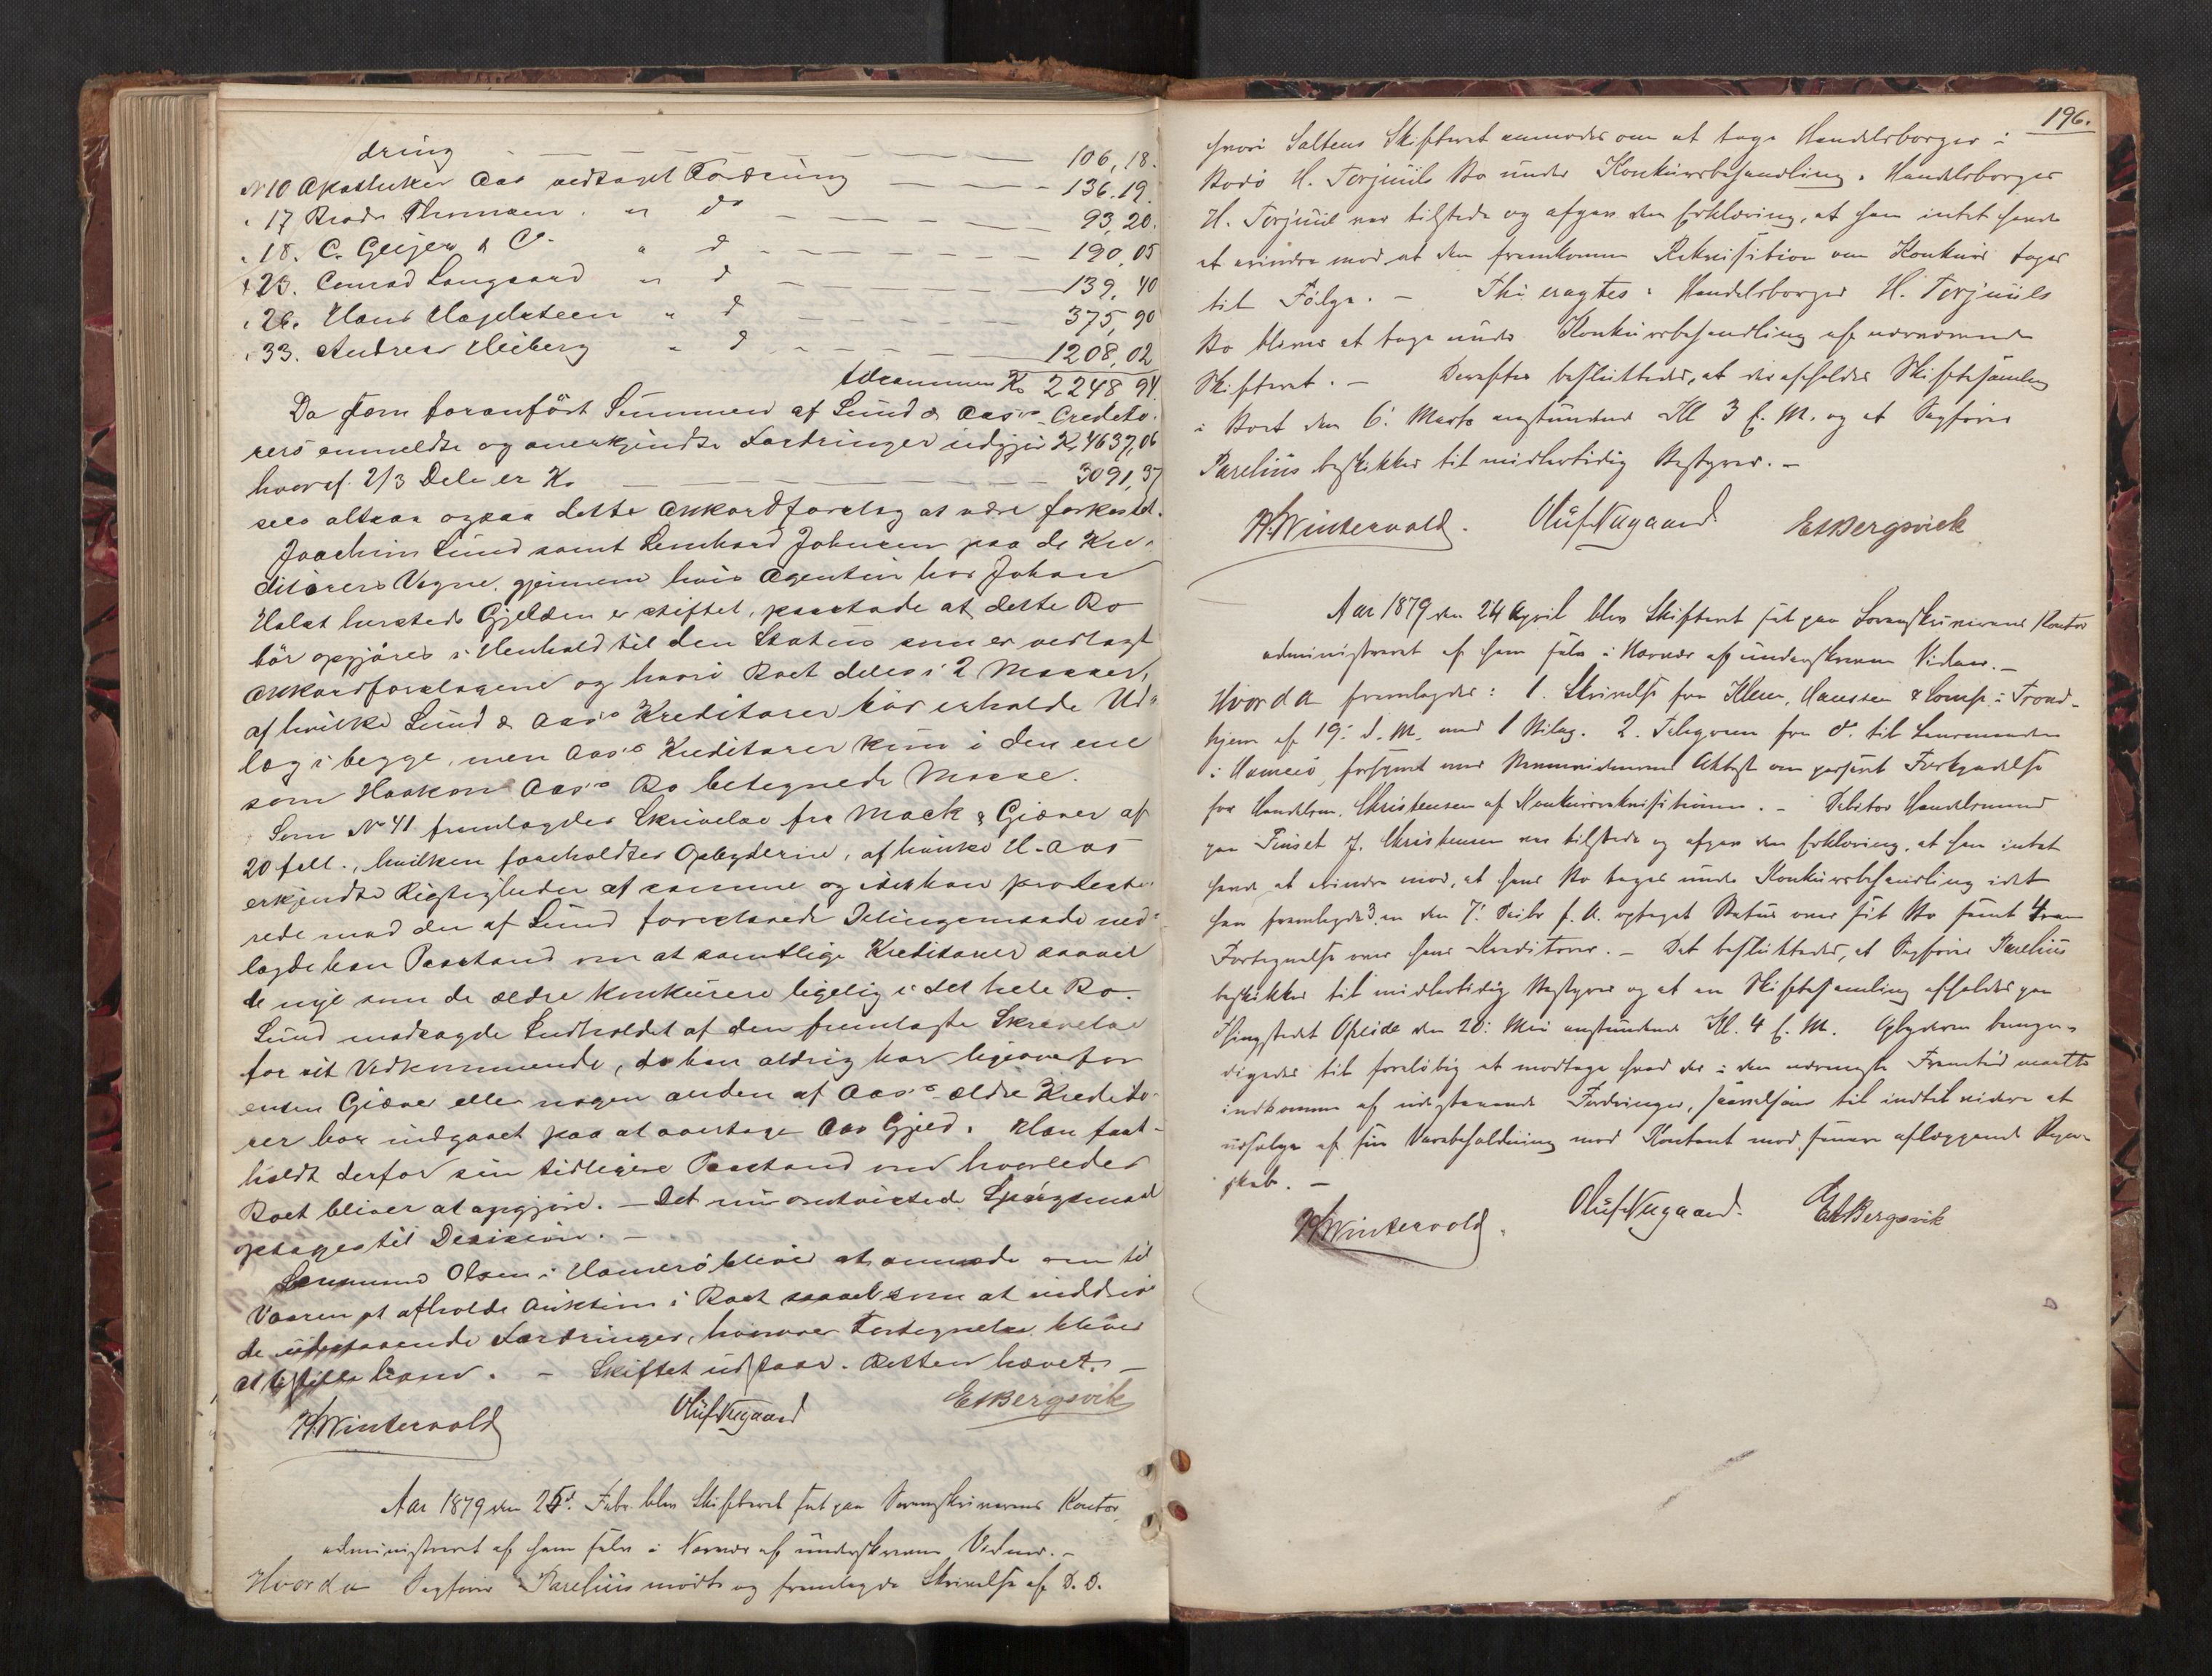 dring — — — — — — 106,18.
No 10 Apotheker Aas vedtaget Fordring — — — 136.19.
" 17 Brødr Thomsen. " do — — — 93,20.
" 18. C. Geijer & Co. " d — — — 190,05
" 23. Conrad Langaard " d — — — 139,40
" 26. Hans Hagelsteen " d — — — 375,90
" 33. Andreas Heiberg " d — — — 1208,02
tilsammen Kr 2248 94.
Da som foranført Summen af Lund & Aas's Credito-
rers anmeldte og anerkjendte Fordringer udgjør Kr 4637,06
hvoraf 2/3 Dele er Kr — — — 3091,37
sees altsaa ogsaa dette Akkordforslag at være forkastet.
Joachim Lund samt Lernhard Johnsen paa de Kre-
ditorers Vegne, gjennem hvis Agentur hos Johan
Halst hersteds Gjelden er stiftet, paastode at dette Bo
bør opgjøres i Henhold til den Status som er vedlagt
Akkordforslagene og hvori Boet deles i 2 Masser,
af hvilke Lund & Aas's Kreditorer bør erholde Ud-
læg i begge, men Aas's Kreditorer kun i den ene
som Haakon Aas's Bo betegnede Masse.
Som No 41 fremlagdes Skrivelse fra Mack & Giæver af
20 febr., hvilken foreholdtes Opbyderne, af hvilke H. Aas
erkjendte Rigtigheden af samme og idet han proteste-
rede mod den af Lund foreslaaede Delingsmaade ned-
lagde han Paastand om at samtlige Kreditorer saavel
de nye som de ældre konkurere ligelig i det hele Bo.
Lund modsagde Indholdet af den fremlagte Skrivelse
for sit Vedkommende, da han aldrig har ligeoverfor
enten Giæver eller nogen anden af Aas's ældre Kredito-
rer har indgaaet paa at overtage Aas Gjed. Han fast-
holdt derfor sin tidligere Paastand om hvorledes
Boet bliver at opgjøre. — Det nu omtvistede Spørgsmaal
optages til Decision. —
Lensmand Olsen i Hamerø bliver at anmode om til
Vaaren at afholde Auktion i Boet saavelsom at inddrive
de udestaaende Fordringer, hvorover Fortegnelse bliver
at tilstille ham. — Skiftet udstaar. Retten hævet. —
H. Wintervold Oluf Nygaard E. Bergsvik
Aar 1879 den 25d. Febr. blev Skifteret sat paa Sorenskriverens Kontor,
administreret af ham selv i Nærvær af underskrevne Vidner. —
Hvorda Sagfører Parelius mødte og fremlagde Skrivelse af D. D.
196.
hvori Saltens Skifteret anmodes om at tage Handelsborger i
Bodø H. Torjuuls Bo under Konkursbehandling. Handelsborger
H. Torjuul var tilstede og afgav den Erklæring, at han intet havde
at erindre mod at den fremkomne Rekvisition om Konkurs toges
til Følge. — Thi eragtes: Handelsborger H. Torjuuls
Bo bliver at tage under Konkursbehandling af nærværende
Skifteret. — Derefter besluttedes, at der afholdes Skiftesamling
i Boet den 6: Marts anstundende Kl 3 E. M. og at Sagfører
Parelius beskikkes til midlertidig Bestyrer. —
H. Wintervold. Oluf Nygaard. E. Bergsvick
Aar 1879 den 24 April blev Skifteret sat paa Sorenskriverens Kontor
administreret af ham selv i Nærvær af underskrevne Vidner. —
Hvorda fremlagdes: 1. Skrivelse fra Klem, Hanssen & Comp. i Trond-
hjem af 19: d. M. med 1 Bilag. 2. Telegram fra do. til Lensmanden
i Hamerø, forsynet med Stevnevidnernes Attest om passeret Forkyndelse
for Handelsm. Christensen af Konkursrekvisitionen. — Debitor Handelsmand
paa Finset J. Christensen var tilstede og afgav den Erklæring, at han intet
havde at erindre mod, at hans Bo toges under Konkursbehandling idet
han fremlagde 3. en den 7: Decbr f. A. optaget Status over sit Bo samt 4. en
Fortegnelse over hans Kreditorer. — Det besluttedes, at Sagfører Parelius
beskikkes til midlertidig Bestyrer og at en Skiftesamling afholdes paa
Thingstedet Opeide den 20: Mai anstundende Kl. 4 E. M. Opbyderen bemyn-
digedes til foreløbig at modtage hvad der i den nærmeste Fremtid maatte
indkomme af udestaaende Fordringer, saavelsom til indtil videre at
udsælge af sin Varebeholdning mod Kontant mod senere aflæggende Regn-
skab. —
H. Wintervold. Oluf Nygaard. E. Bergsvik